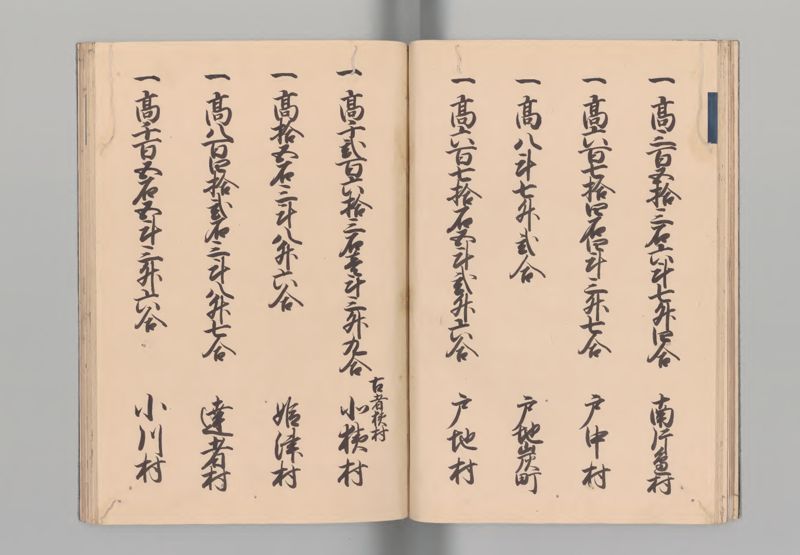 一高三百五拾三石六斗七升四合 南片邊村
一高六百七拾四石四斗三升七合 戸中村
一高八斗七升貳合 戸地炭町
一高六百七拾石五斗貳升六合 戸地村
一高千貳百六拾三石壹斗三升九合 北狄村
古者狄村
一高拾五石三斗八升六合 姫津村
一高八百四拾貳石三斗八升七合 達者村
一高千百五石五斗三升六合 小川村